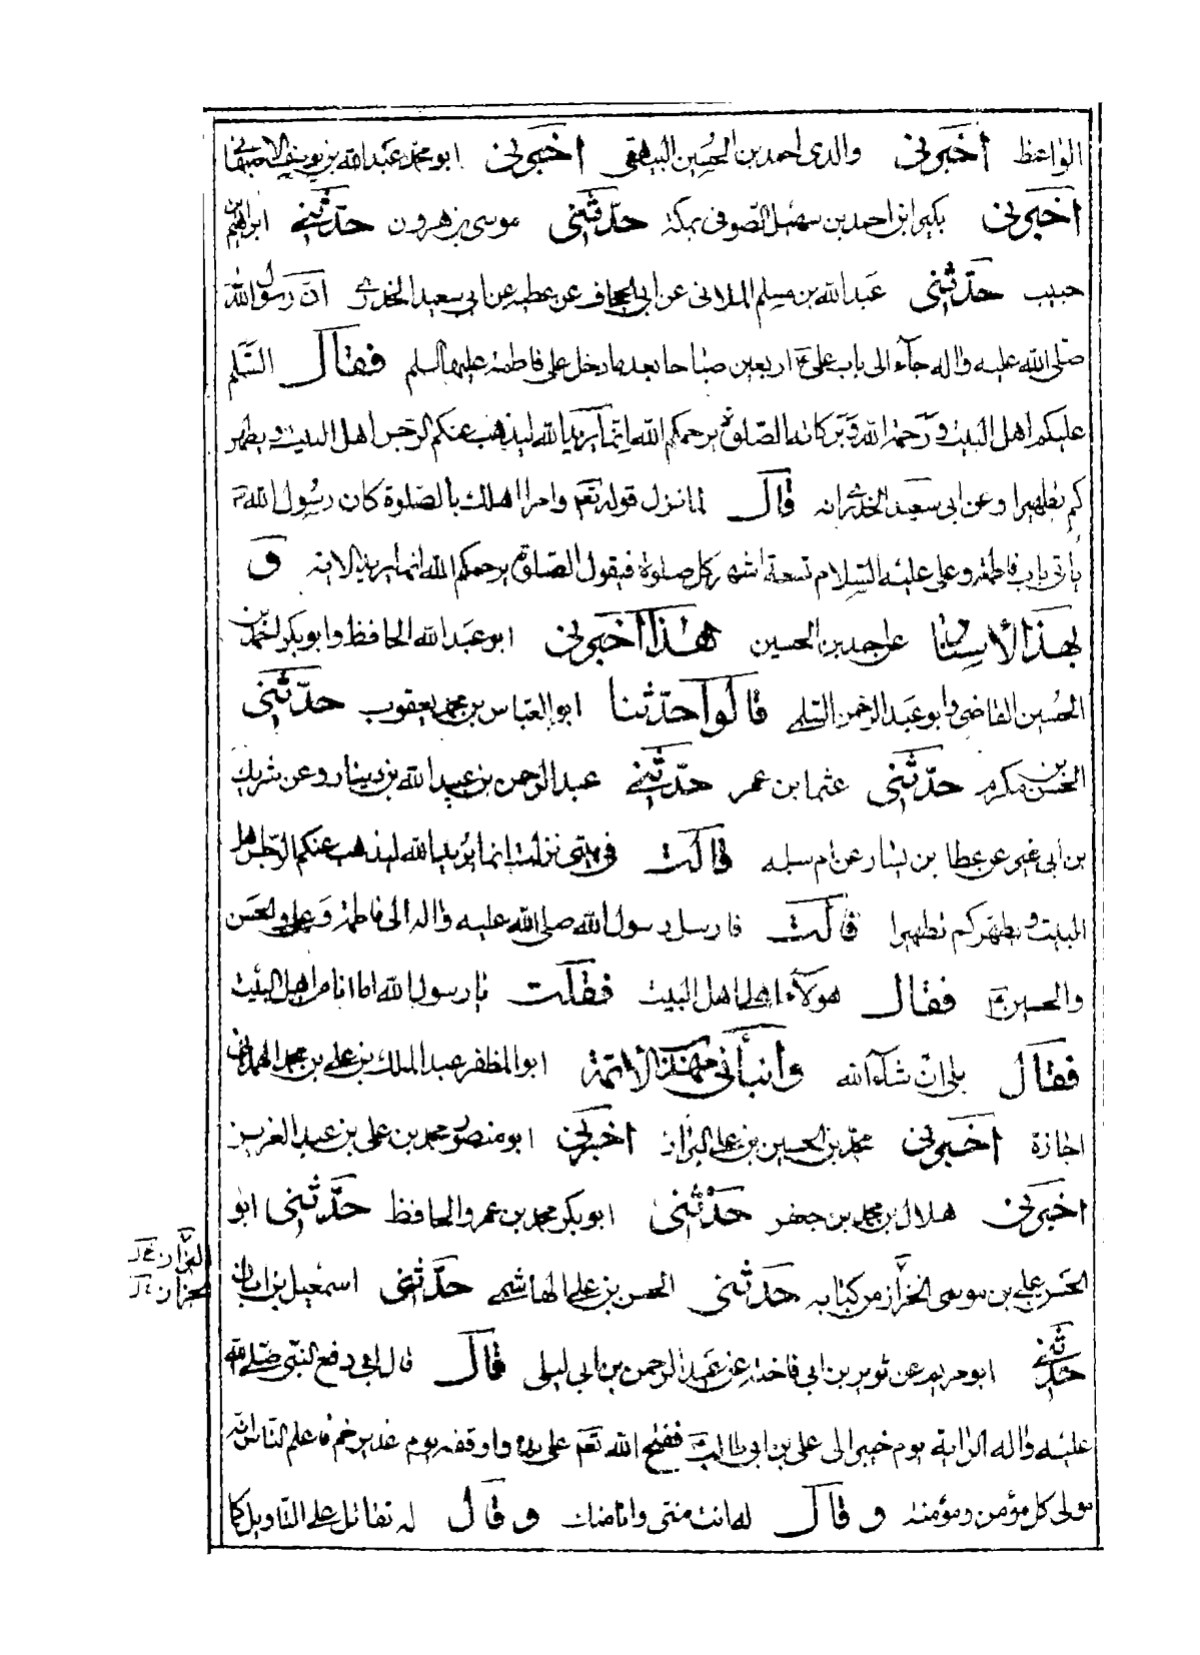 الواعظ أخبرني والدي احمد بن الحسين البيهقي أخبرني ابو محمد عبد الله بن يوسف الاصبهاني
أخبرني بكير ابن احمد بن سهيل الصوفي بمكة حدّثني موسى بن هرون حدّثني ابراهيم بن
حبيب حدّثني عبد الله بن مسلم الملائي عن ابي الجحاف عن عطيه عن ابي سعيد الخدري انّ رسول الله
صلّى الله عليه واله جآء الى باب علي ع اربعين صباحا بعد ما دخل على فاطمة عليها السلم فقال السّلم
عليكم اهل البيت ورحمة الله وبركاته الصّلوة يرحمكم الله انّما يريد الله ليذهب عنكم الرّجس اهل البيت ويطهر
كم تطهيرا وعن ابي سعيد الخدري انه قال لما نزل قوله تعم وامر اهلك بالصّلوة كان رسول الله ص
يأتي باب فاطمة وعلي عليه السّلام تسعة اشهر كل صلوة فيقول الصّلوة يرحمكم الله انما يريد الاية و
بهذا الأسناد عن احمد بن الحسين هذا أخبرني ابو عبد الله الحافظ وابو بكر احمد بن
الحسين القاضي وابو عبد الرحمن السّلمي قالوا حدّثنا ابو العباس بن محمد يعقوب حدّثني
الحسن بن مكرم حدّثني عثما ابن عمر حدّثني عبد الرحمن بن عبد الله بن دينار وعن شريك
بن ابي نمير عن عطا بن يسار عن ام سلمه قالت في بيتي نزلت انما يريد الله ليذهب عنكم الرّجس اهل
البيت ويطهّركم تطهيرا قالت فارسل رسول الله صلى الله عليه واله الى فاطمة وعلي والحسن
والحسين ع فقال هولاء اهلي اهل البيت فقلت يا رسول الله اما انا من اهل البيت
فقال بلى ان شآء الله وأنبأني مهذب الأئمّة ابو المظفر عبد الملك بن علي بن محمد الهمداني
اجازة أخبرني محمّد بن الحسين بن علي البزّاز أخبرني ابو منصور محمد بن علي بن عبد العزيز
أخبرني هلال بن محمد بن جعفر حدّثني ابو بكر محمد بن عمرو الحافظ حدّثني ابو
الحسن علي بن موسى الخزّاز من كتابه حدثني الحسن بن علي الهاشمي حدّثني اسمعيل بن ابان
حدّثني ابو مريم عن ثوير بن ابي فاختة عن عبد الرحمن بن ابي ليلى قال قال ابي دفع النبيّ صلّى الله
عليه واله الراية يوم خيبر الى علي بن ابي طالب ع ففتح الله تعم على يده واوقفه يوم غدير خم فاعلم الناس انه
مولى كل مؤمن ومؤمنة وقال له انت منّي وانا منك وقال له تقاتل على التّاويل كما